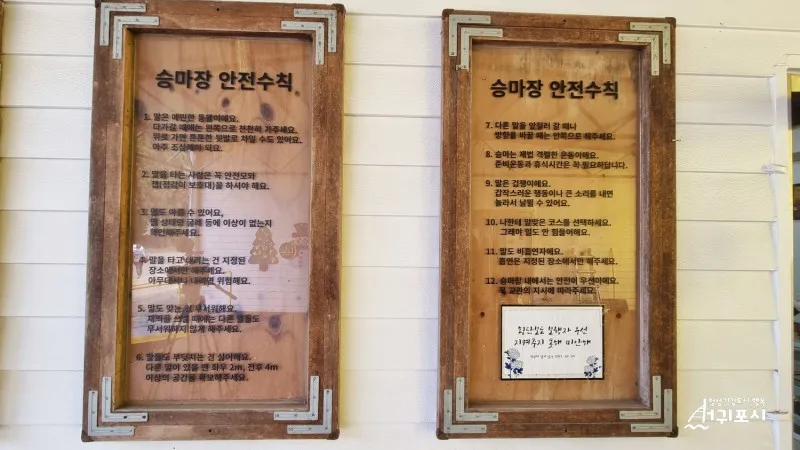 승마장 안전수칙
1. 말은 예민한 동물이에요.
다가갈 때에는 왼쪽으로 천천히 가주세요.
뒤로 가면 튼튼한 뒷발로 차일 수도 있어요.
아주 조심해야 되요.
2. 말을 타는 사람은 꼭 안전모와
챕(정강이 보호대)을 하셔야 해요.
3. 말도 아플 수 있어요,
말 상태랑 굴레 등에 이상이 없는지
확인해주세요.
4. 말을 타고 내리는 건 지정된
장소에서만 해주세요.
아무데서나 내리면 위험해요.
5. 말도 맞는 건 무서워해요.
채찍을 쓰실 때에는 다른 말들도
무서워하지 않게 해주세요.
6. 말들도 부딪치는 건 싫어해요.
다른 말이 있을 땐 좌우 2m, 전후 4m
이상의 공간을 확보해주세요.
승마장 안전수칙
7. 다른 말을 앞질러 갈 때나
방향을 바꿀 때는 안쪽으로 해주세요.
8. 승마는 제법 격렬한 운동이에요.
준비운동과 휴식시간은 꼭 필요하답니다.
9. 말은 겁쟁이에요.
갑작스러운 행동이나 큰 소리를 내면
놀라서 날뛸 수 있어요.
10. 나한테 알맞은 코스를 선택하세요.
그래야 말도 안 힘들어해요.
11. 말도 비흡연자에요.
흡연은 지정된 장소에서만 해주세요.
12. 승마장 내에서는 안전이 우선이에요.
꼭 교관의 지시에 따라주세요.
횡단보도 보행자 우선
지켜주지 못해 미안해
서귀포시